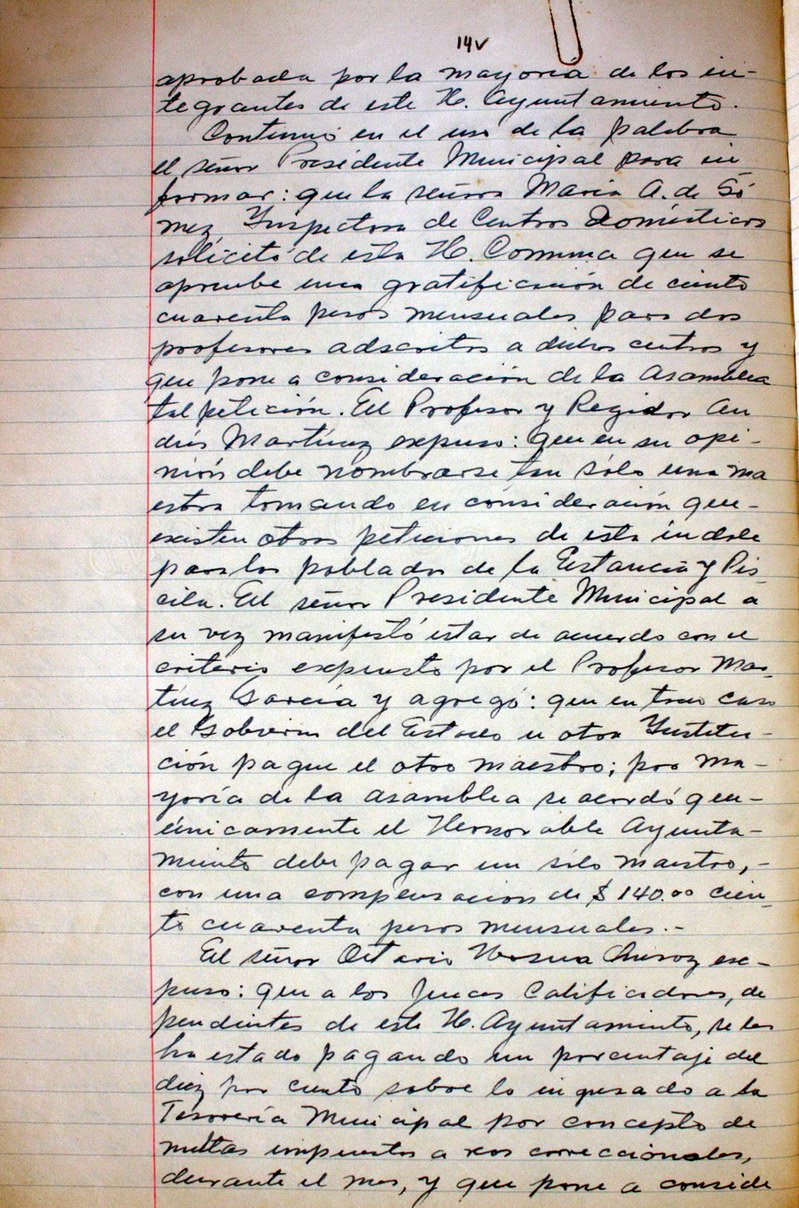 14v
aprobada por la mayoría de los in-
tegrantes de este H. Ayuntamiento.
Continuó en el uso de la palabra
el señor Presidente Municipal para in
formar: que la señora María A. de Gó
mez, Inspectora de Centros Domésticos
solicitó de esta H. Comuna que se
apruebe una gratificación de ciento
cuarenta pesos mensuales para dos
profesores adscritos a dichos centros y
que pone a consideración de la Asamblea
tal petición. El Profesor y Regidor An
drés Martínez expuso: que en su opi-
nión debe nombrarse tan sólo una ma
estra tomando en consideración que-
existen otras peticiones de esta índole
para los poblados de la Estancia y Pis-
cila. El señor Presidente Municipal a
su vez manifestó estar de acuerdo con el
criterio expuesto por el Profesor Mar-
tínez García y agregó: que en todo caso
el Gobierno del Estado u otra Institu-
ción pague el otro maestro; por ma-
yoría de la asamblea se acordó que-
únicamente el Honorable Ayunta-
miento debe pagar un sólo maestro,-
con una compensación de $ 140.00 cien-
to cuarenta pesos mensuales.-
El señor Octavio ex-
puso: que a los Jueces Calificadores, de
pendientes de este H. Ayuntamiento, se les
ha estado pagando un porcentaje del
diez por ciento sobre lo ingresado a la
Tesorería Municipal por concepto de
multas impuestas a reos correccionales,
durante el mes, y que pone a conside